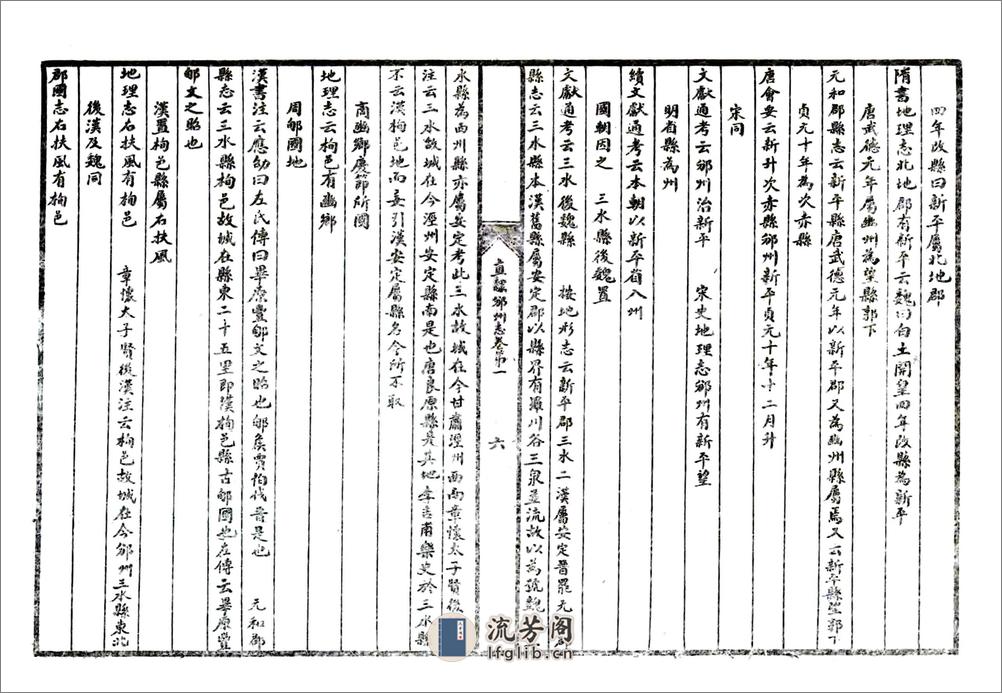 四年改縣曰新平屬北地郡
隋書地理志北地郡有新平云魏曰白土開皇四年改縣為新平
唐武德元年屬豳州為望縣郭下
元和郡縣志云新平縣唐武德元年以新平郡又為豳州縣屬焉又云新平縣望郭下
貞元十年為次赤縣
唐會要云新升次赤縣邠州新平貞元十年十二月升
宋同
文獻通考云邠州治新平 宋史地理志邠州有新平望
明省縣為州
續文獻通考云本朝以新平省入州
國朝因之 三水縣後魏置
文獻通考云三水後魏縣 按地形志云新平郡三水二漢屬安定晉罷元
縣志云三水縣本漢舊縣屬安定郡以縣界有羅川谷三泉並流故以為號魏
直隸邠州志卷第一
六
水縣為西川縣亦屬安定考此三水故城在今甘肅涇州西而章懷太子賢後
注云三水故城在今涇州安定縣南是也唐良原縣是其地李吉甫樂史於三水縣
不云漢栒邑地而妄引漢安定屬縣名今所不取
商豳鄉慶節所國
地理志云栒邑有豳鄉
周郇國地
漢書注云應劭曰左氏傳曰畢原豐郇文之昭也郇侯賈伯伐晉是也 元和郡
縣志云三水縣栒邑故城在縣東二十五里即漢栒邑縣古郇國也左傳云畢原豐
郇文之昭也
漢置栒邑縣屬右扶風
地理志右扶風有栒邑 章懷太子賢後漢注云栒邑故城在今邠州三水縣東北
後漢及魏同
郡國志右扶風有栒邑
流芳閣
lfglib.cn